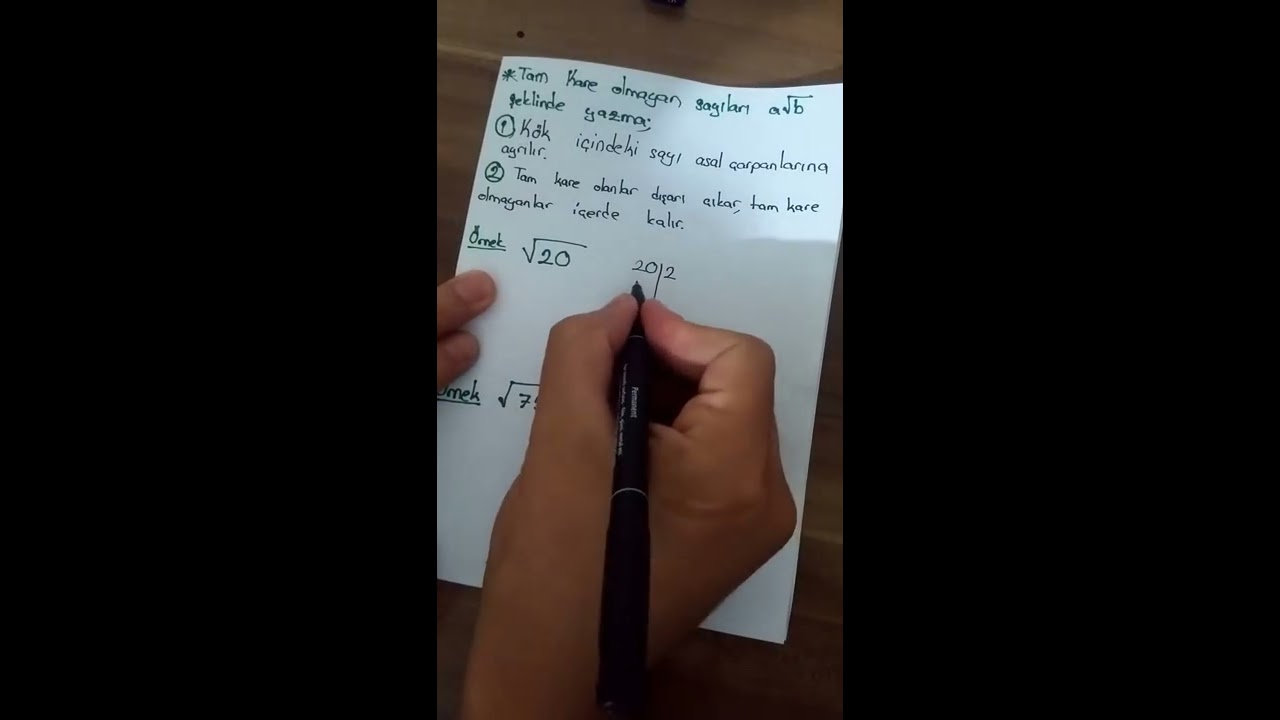 *Tam kare olmayan sayıları a√b
şeklinde yazma;
① Kök içindeki sayı asal çarpanlarına
ayrılır.
② Tam kare olanlar dışarı çıkar, tam kare
olmayanlar içerde kalır.
Örnek √20 20|2
Örnek
Permanent